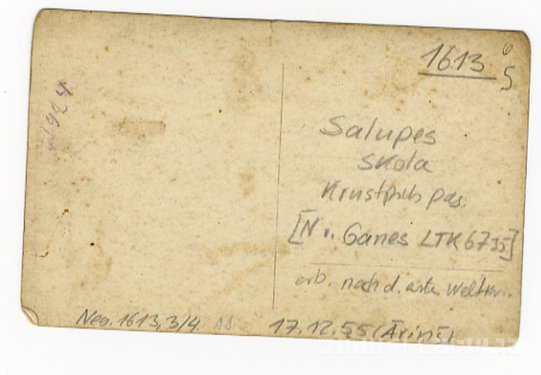 1613 6
5
1924
Salupes
skola
Krustpils pag.
[N v. Ganes LTK 6735]
erb. nach d. ersten Weltkr.
Neg. 1613,3/4
17.12.55 (Āriņš)